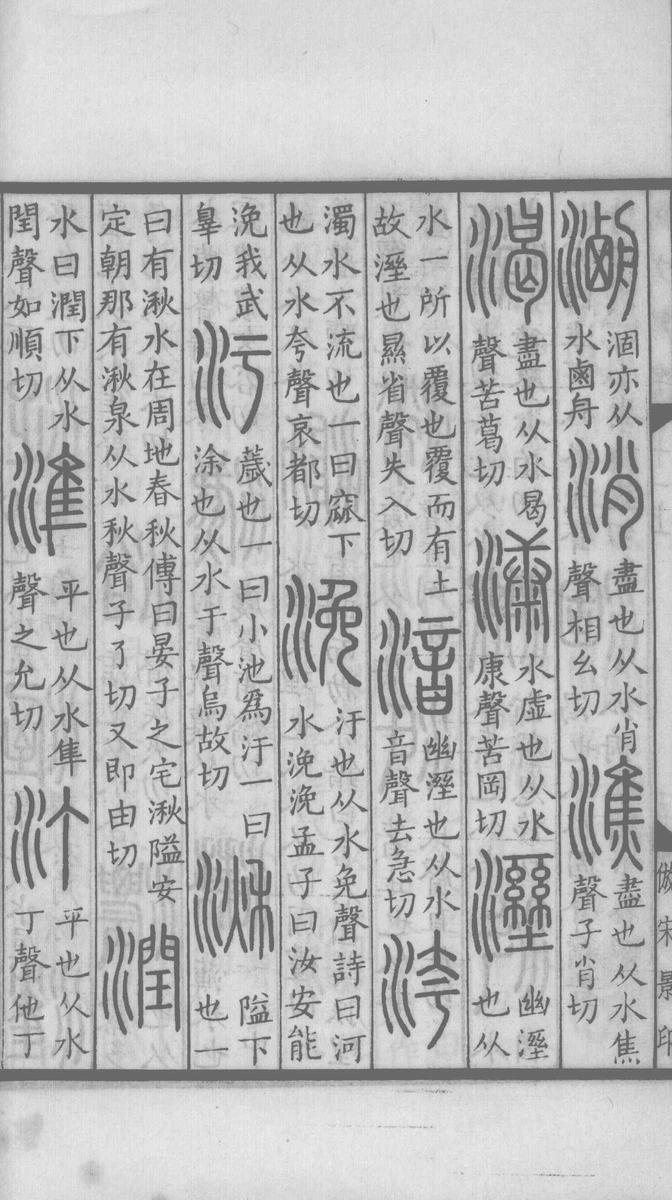 倣宋景印
𣹰涸亦从水鹵舟消盡也从水肖聲相幺切潐盡也从水焦聲子肖切
渴盡也从水曷聲苦葛切漮水虛也从水康聲苦岡切溼幽溼也从
水一所以覆也覆而有土故溼也㬎省聲失入切湆幽溼也从水音聲去急切洿
濁水不流也一曰窳下也从水夸聲哀都切浼汙也从水免聲詩曰河水浼浼孟子曰汝安能
浼我武辠切汙薉也一曰小池爲汙一曰涂也从水于聲烏故切湫隘下也一
曰有湫水在周地春秋傳曰晏子之宅湫隘安定朝那有湫泉从水秋聲子了切又即由切潤
水曰潤下从水閏聲如順切準平也从水隼聲之允切汀平也从水丁聲他丁